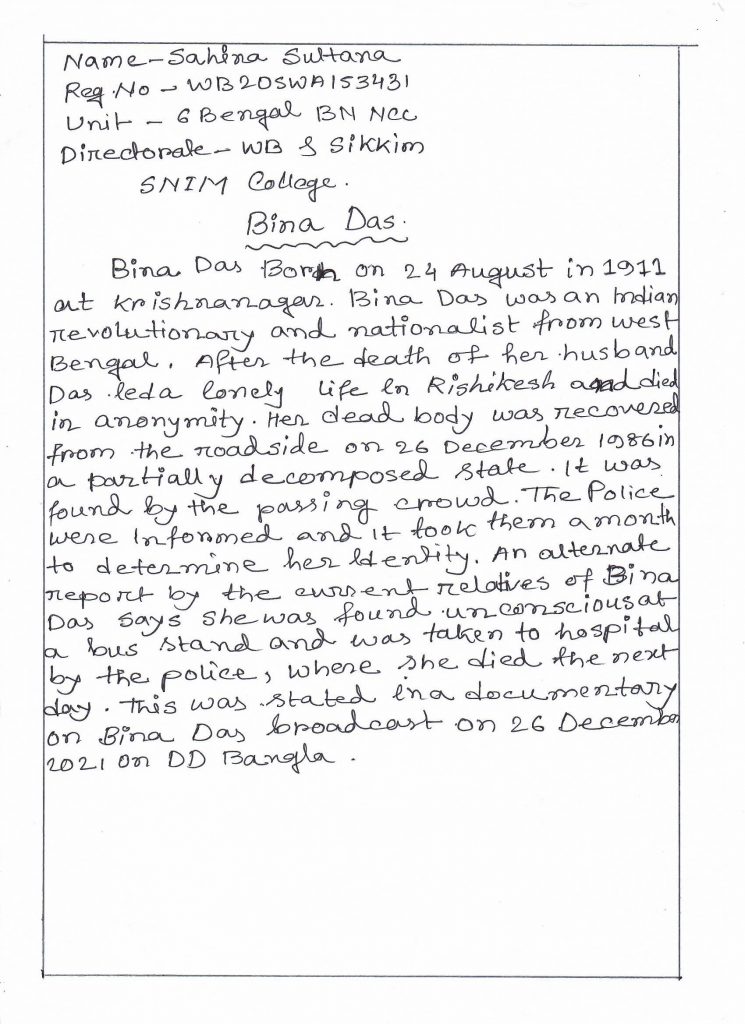 Name - Sahina Sultana
Reg. No - WB20SWA153431
Unit - 6 Bengal BN NCC
Directorate - WB & Sikkim
SNIM College.
Bina Das.
Bina Das Born on 24 August in 1911
at Krishnanagar. Bina Das was an Indian
revolutionary and nationalist from west
Bengal. After the death of her husband
Das led a lonely life in Rishikesh and died
in anonymity. Her dead body was recovered
from the roadside on 26 December 1986 in
a partially decomposed state. It was
found by the passing crowd. The Police
were Informed and it took them a month
to determine her Identity. An alternate
report by the current relatives of Bina
Das says she was found unconscious at
a bus stand and was taken to hospital
by the police, where she died the next
day. This was stated in a documentary
on Bina Das broadcast on 26 December
2021 on DD Bangla.